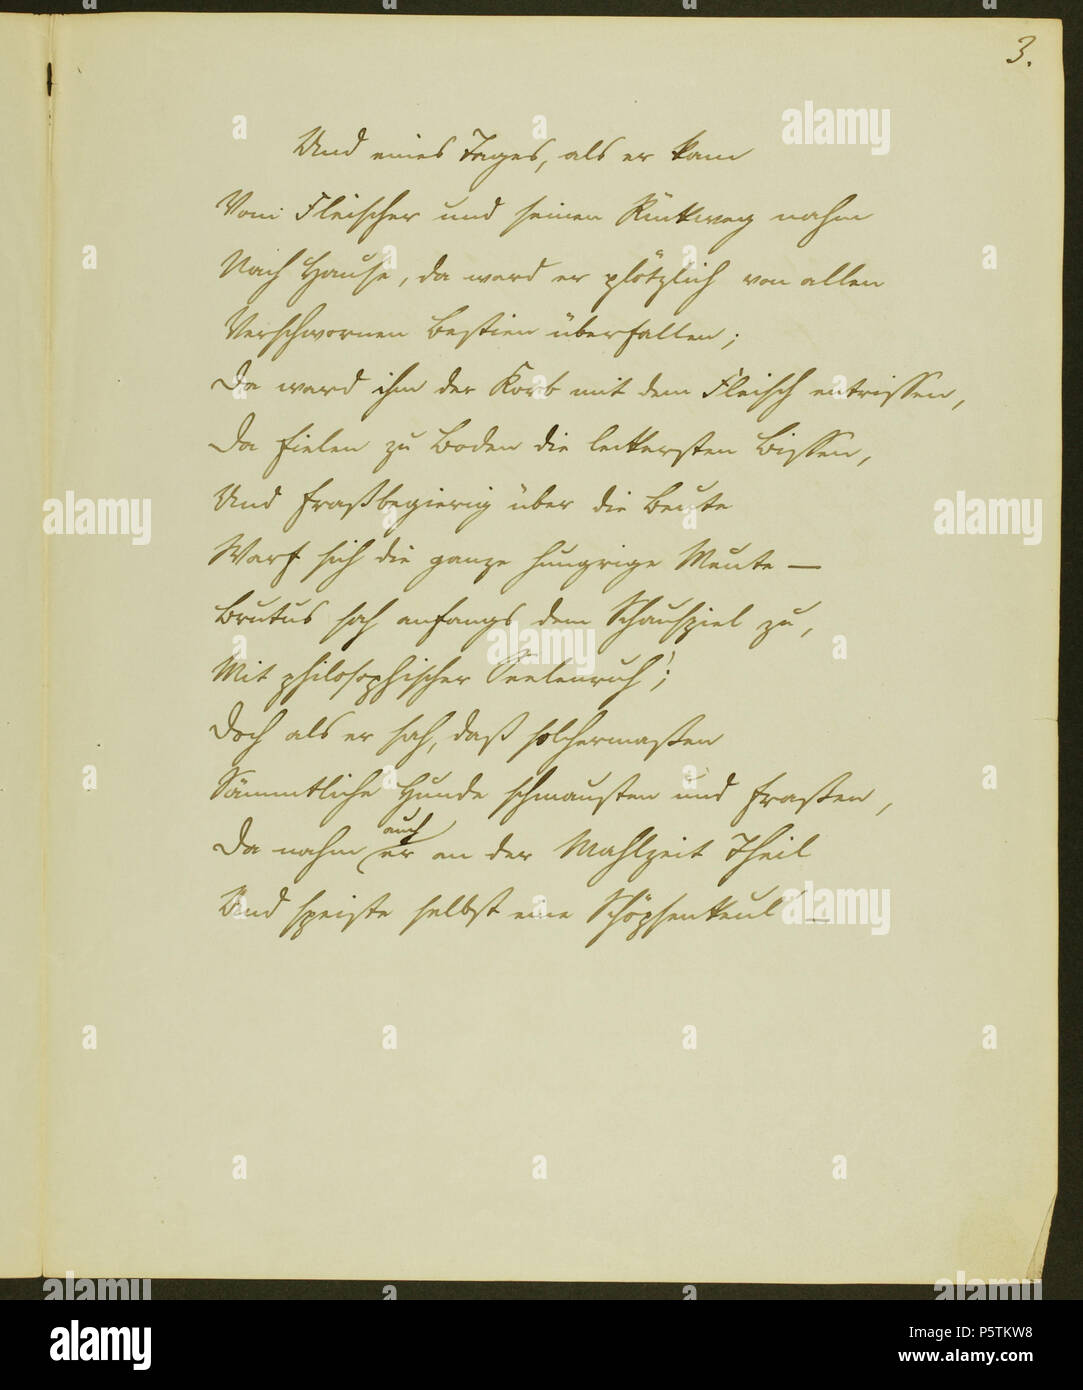 3.
Und eines Tages, als er kam
Vom Fleischer und seinen Rückweg nahm
Nach Hause, da ward er plötzlich von allen
Verschwornen Bestien überfallen;
Da ward ihm der Korb mit dem Fleisch entrissen,
Da fielen zu Boden die leckersten Bissen,
Und fraßbegierig über die Beute
Warf sich die ganze hungrige Meute —
Brutus sah anfangs dem Schauspiel zu,
Mit philosophischer Seelenruh';
Doch als er sah, daß solchermaßen
Sämmtliche Hunde schmausten und fraßen,
auch
Da nahm er an der Mahlzeit Theil
Und speiste selbst eine Schöpsenkeul —
alamy
alamy
alamy
alamy
alamy
alamy
Image ID: P5TKW8
www.alamy.com